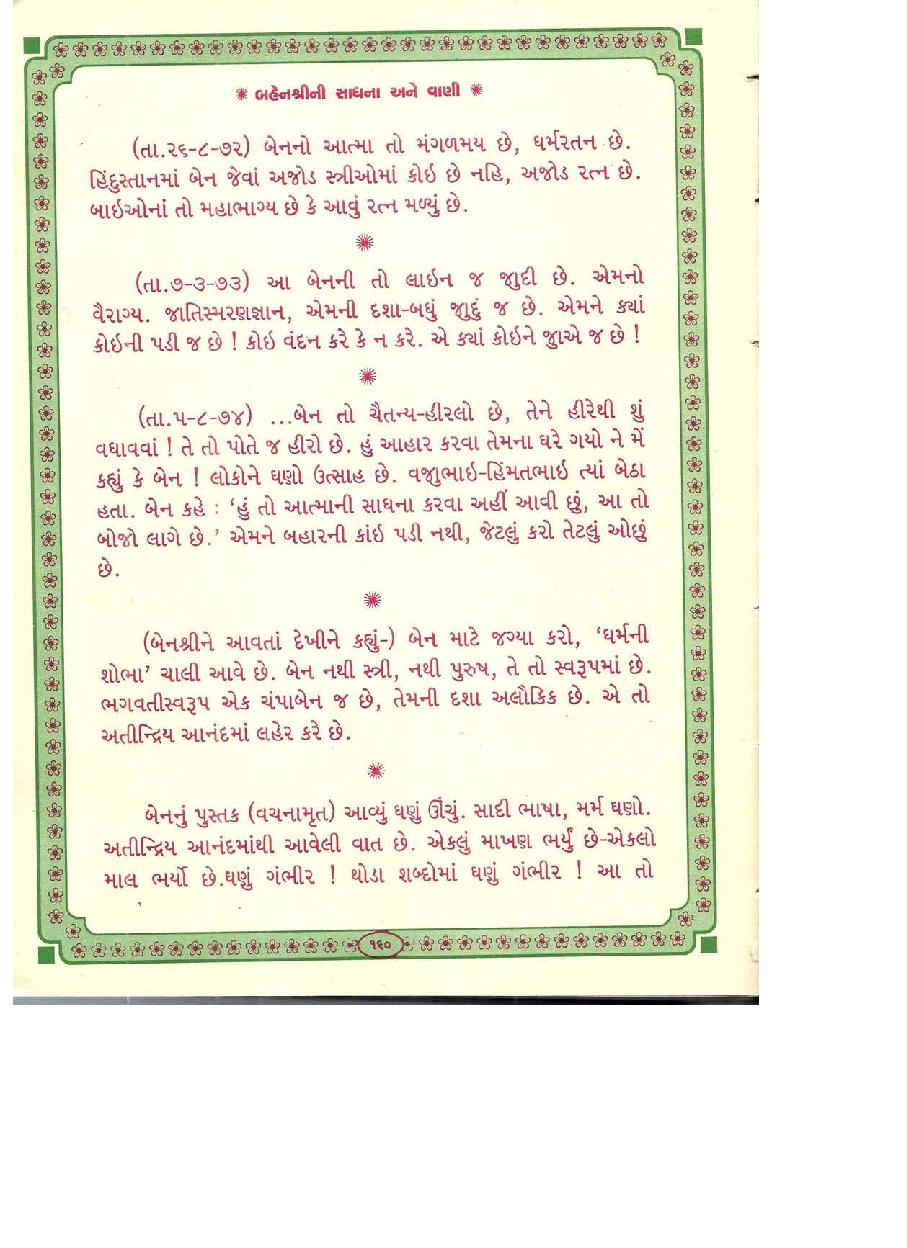 બહેનશ્રીની સાધના અને વાણી
(તા.૨૬-૮-૭૨) બેનનો આત્મા તો મંગળમય છે, ધર્મરતન છે.
હિંદુસ્તાનમાં બેન જેવાં અજોડ સ્ત્રીઓમાં કોઇ છે નહિ, અજોડ રત્ન છે.
બાઇઓનાં તો મહાભાગ્ય છે કે આવું રત્ન મળ્યું છે.
(તા.૭-૩-૭૩) આ બેનની તો લાઇન જ જુદી છે. એમનો
વૈરાગ્ય. જાતિસ્મરણજ્ઞાન, એમની દશા-બધું જુદું જ છે. એમને ક્યાં
કોઇની પડી જ છે ! કોઇ વંદન કરે કે ન કરે. એ ક્યાં કોઇને જુએ જ છે !
(તા.૫-૮-૭૪) ...બેન તો ચૈતન્ય-હીરલો છે, તેને હીરેથી શું
વધાવવાં ! તે તો પોતે જ હીરો છે. હું આહાર કરવા તેમના ઘરે ગયો ને મેં
કહ્યું કે બેન ! લોકોને ઘણો ઉત્સાહ છે. વજુભાઇ-હિંમતભાઇ ત્યાં બેઠા
હતા. બેન કહે : ‘હું તો આત્માની સાધના કરવા અહીં આવી છું, આ તો
બોજો લાગે છે.’ એમને બહારની કાંઇ પડી નથી, જેટલું કરો તેટલું ઓછું
છે.
(બેનશ્રીને આવતાં દેખીને કહ્યું-) બેન માટે જગ્યા કરો, ‘ધર્મની
શોભા’ ચાલી આવે છે. બેન નથી સ્ત્રી, નથી પુરુષ, તે તો સ્વરૂપમાં છે.
ભગવતીસ્વરૂપ એક ચંપાબેન જ છે, તેમની દશા અલૌકિક છે. એ તો
અતીન્દ્રિય આનંદમાં લહેર કરે છે.
બેનનું પુસ્તક (વચનામૃત) આવ્યું ઘણું ઊંચું. સાદી ભાષા, મર્મ ઘણો.
અતીન્દ્રિય આનંદમાંથી આવેલી વાત છે. એકલું માખણ ભર્યું છે-એકલો
માલ ભર્યો છે.ઘણું ગંભીર ! થોડા શબ્દોમાં ઘણું ગંભીર ! આ તો
૧૬૦